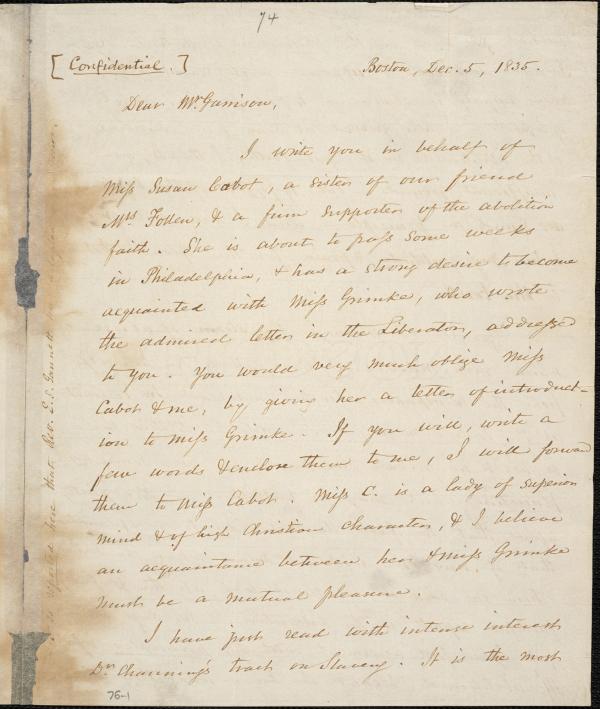 74
[Confidential.]
Boston, Dec. 5, 1835.
Dear Mr. Garrison,
I write you in behalf of
Miss Susan Cabot, a sister of our friend
Mrs Follen, & a firm supporter of the abolition
faith. She is about to pass some weeks
in Philadelphia, & has a strong desire to become
acquainted with Miss Grimke, who wrote
the admired letter in the Liberator, addressed
to you. You would very much oblige Miss
Cabot & me, by giving her a letter of introduct-
ion to Miss Grimke. If you will, write a
few words & enclose them to me, I will forward
them to Miss Cabot. Miss C. is a lady of superior
mind & of high Christian character, & I believe
an acquaintance between her & Miss Grimke
must be a mutual pleasure.
I have just read with intense interest
Dr. Channing's tract on Slavery. It is the most
76-1
reported here that Rev. E.S. Gannett